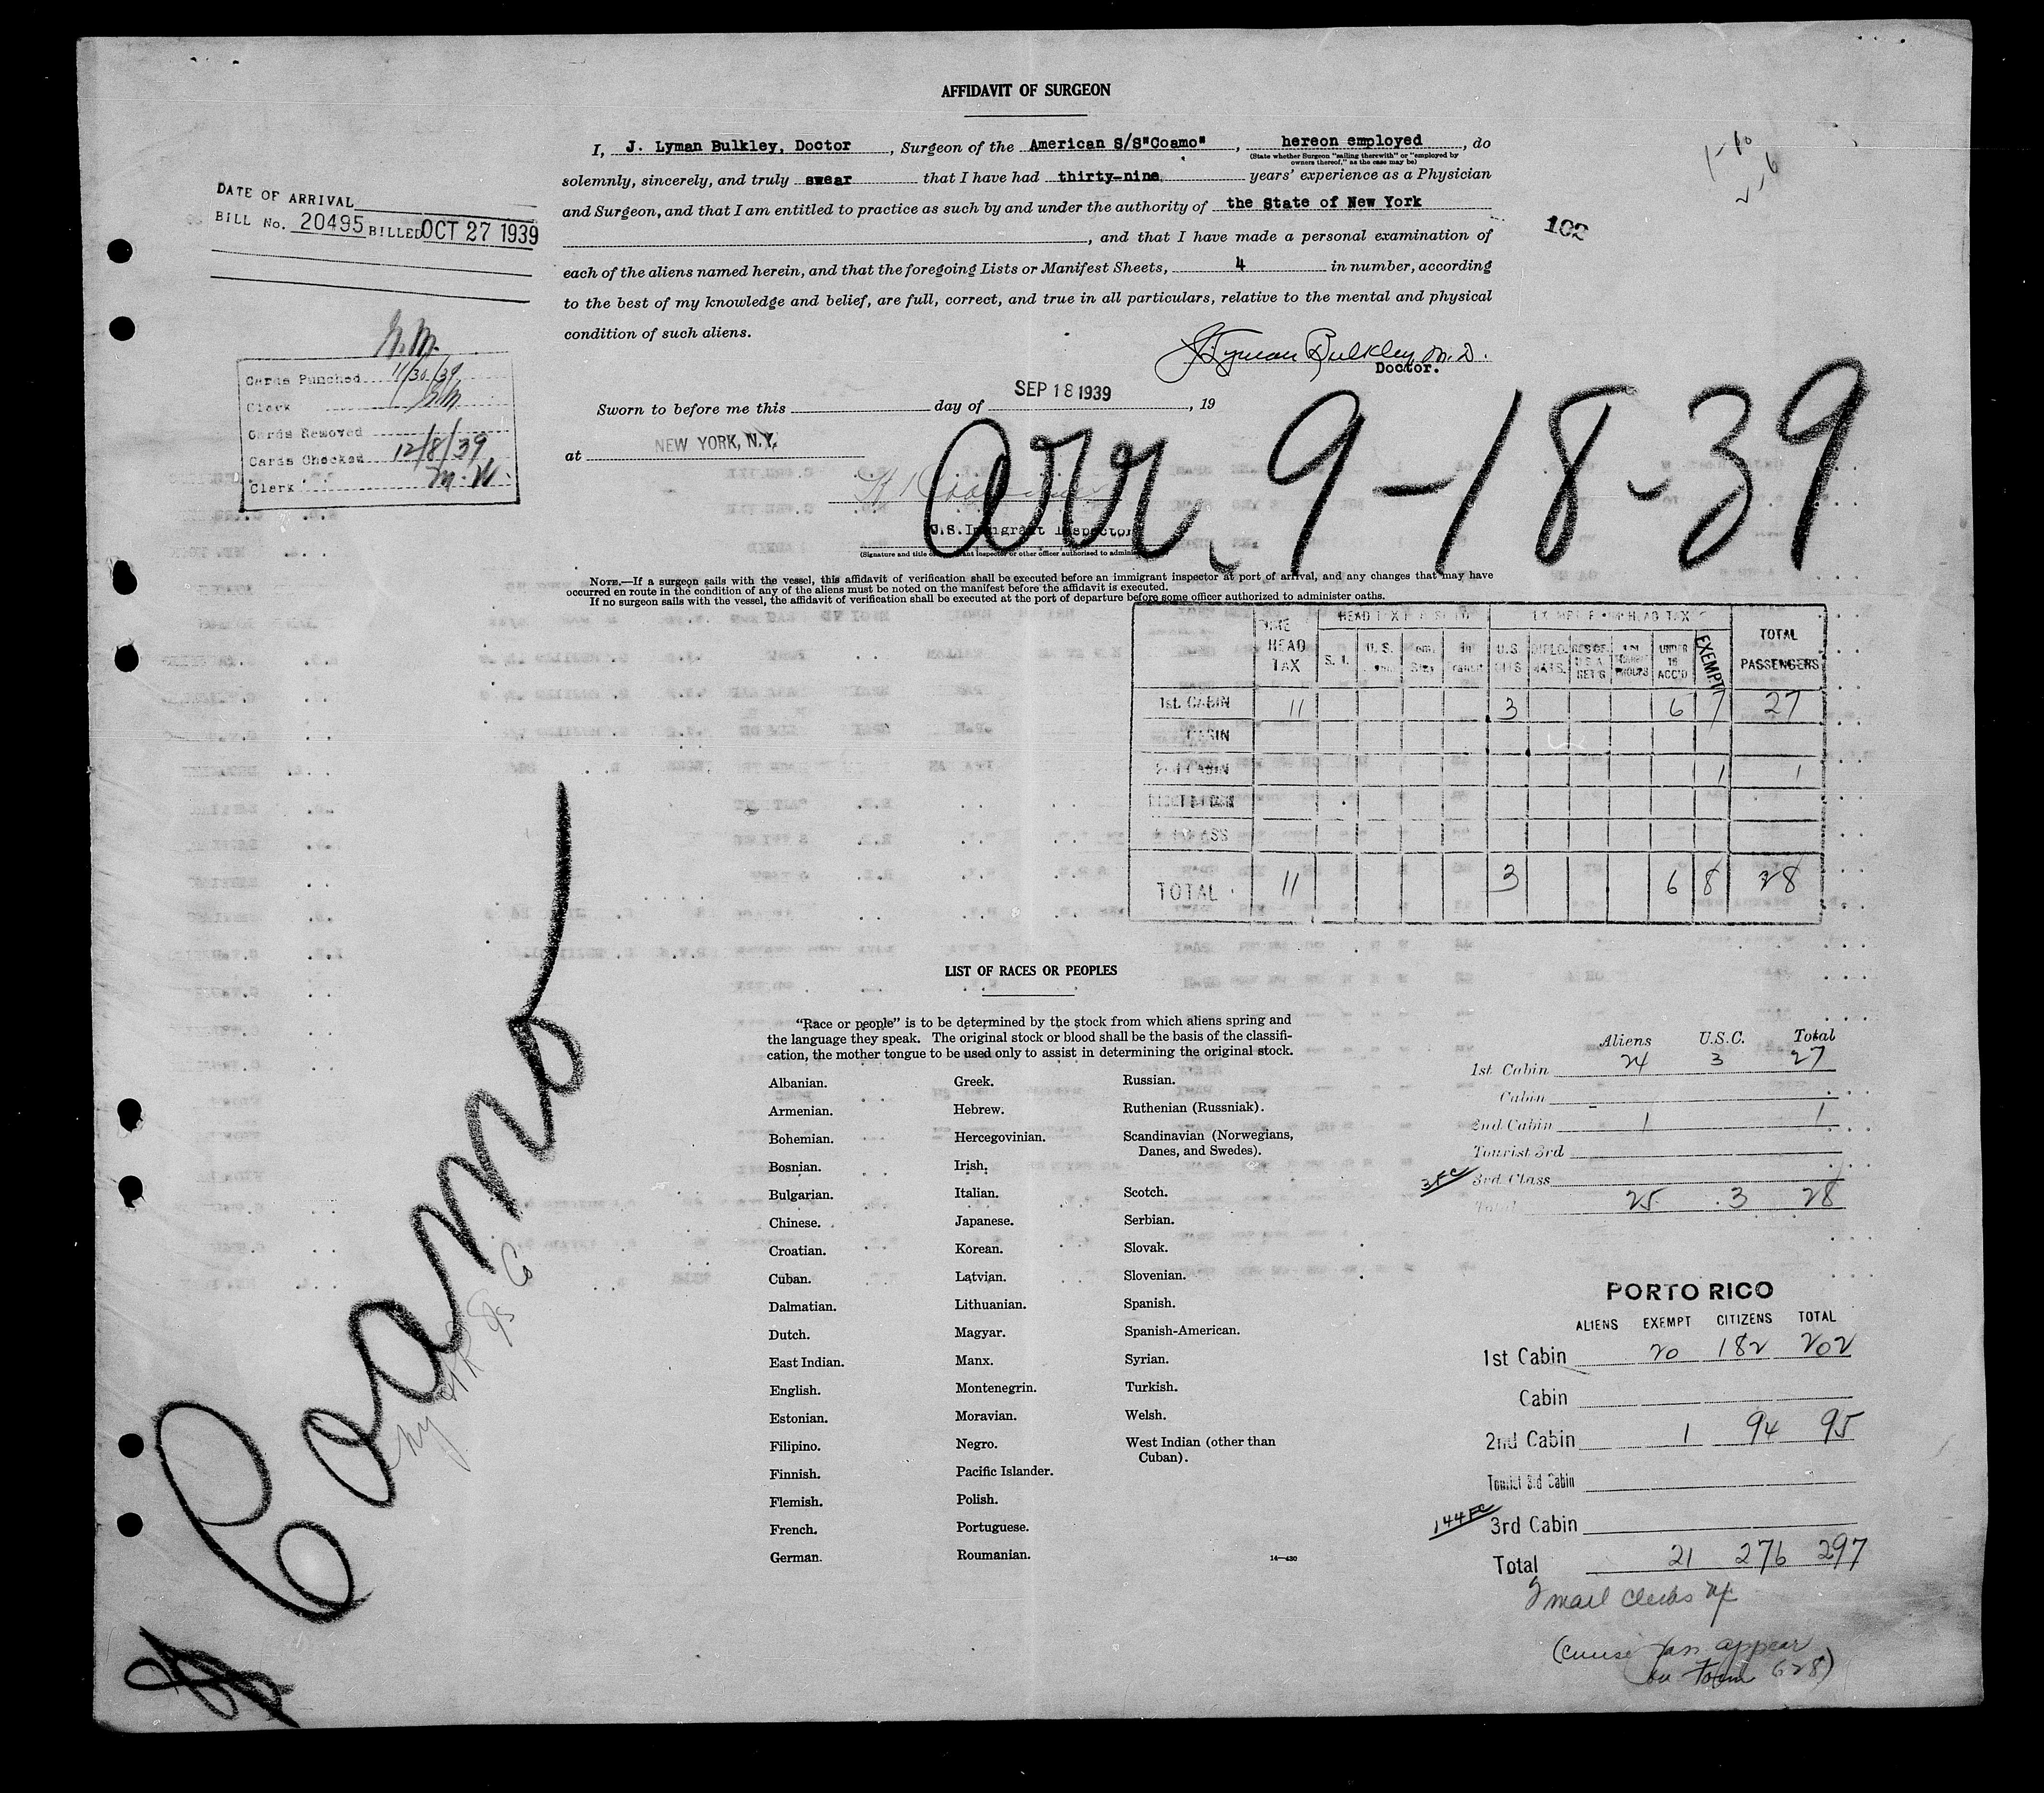 AFFIDAVIT OF SURGEON
I, J. Lyman Bulkley, Doctor, Surgeon of the American S/S"Coamo", hereon employed, do
(State whether Surgeon "sailing therewith" or "employed by
owners thereof," as the case may be)
solemnly, sincerely, and truly swear that I have had thirty-nine years' experience as a Physician
and Surgeon, and that I am entitled to practice as such by and under the authority of the State of New York
, and that I have made a personal examination of
each of the aliens named herein, and that the foregoing Lists or Manifest Sheets, 4 in number, according
to the best of my knowledge and belief, are full, correct, and true in all particulars, relative to the mental and physical
condition of such aliens.
J. Lyman Bulkley M.D.
Doctor.
Sworn to before me this day of SEP 18 1939, 19
at NEW YORK, N.Y.
U.S. Immigrant Inspector
arr. 9-18-39
102
DATE OF ARRIVAL
BILL No. 20495 BILLED OCT 27 1939
Cards Punched 11/30/39
Clerk
Cards Removed
Cards Checked 12/8/39
Clerk
NOTE.—If a surgeon sails with the vessel, this affidavit of verification shall be executed before an immigrant inspector at port of arrival, and any changes that may have
occurred en route in the condition of any of the aliens must be noted on the manifest before the affidavit is executed.
If no surgeon sails with the vessel, the affidavit of verification shall be executed at the port of departure before some officer authorized to administer oaths.
HEAD TAX
U.S. CITS
UNDER 16 ACC'D
EXEMPT
TOTAL PASSENGERS
1st. CABIN 11 3 6 7 27
CABIN
2nd CABIN 1 1
TOTAL 11 3 6 8 28
Coamo
LIST OF RACES OR PEOPLES
"Race or people" is to be determined by the stock from which aliens spring and
the language they speak. The original stock or blood shall be the basis of the classifi-
cation, the mother tongue to be used only to assist in determining the original stock.
Albanian.
Armenian.
Bohemian.
Bosnian.
Bulgarian.
Chinese.
Croatian.
Cuban.
Dalmatian.
Dutch.
East Indian.
English.
Estonian.
Filipino.
Finnish.
Flemish.
French.
German.
Greek.
Hebrew.
Hercegovinian.
Irish.
Italian.
Japanese.
Korean.
Latvian.
Lithuanian.
Magyar.
Manx.
Montenegrin.
Moravian.
Negro.
Pacific Islander.
Polish.
Portuguese.
Roumanian.
Russian.
Ruthenian (Russniak).
Scandinavian (Norwegians,
Danes, and Swedes).
Scotch.
Serbian.
Slovak.
Slovenian.
Spanish.
Spanish-American.
Syrian.
Turkish.
Welsh.
West Indian (other than
Cuban).
14—430
Aliens U.S.C. Total
1st Cabin 24 3 27
Cabin
2nd Cabin 1 1
Tourist 3rd
3rd Class
Total 25 3 28
PORTO RICO
ALIENS EXEMPT CITIZENS TOTAL
1st Cabin 20 182 202
Cabin
2nd Cabin 1 94 95
Tourist 3rd Cabin
3rd Cabin
Total 21 276 297
mail clerks
(cruise pass appear
on Form 628)